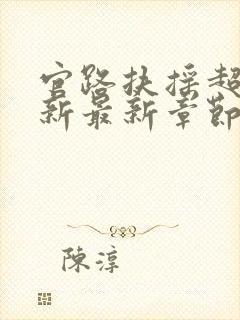 官路扶摇超
新最新章節
陳淳